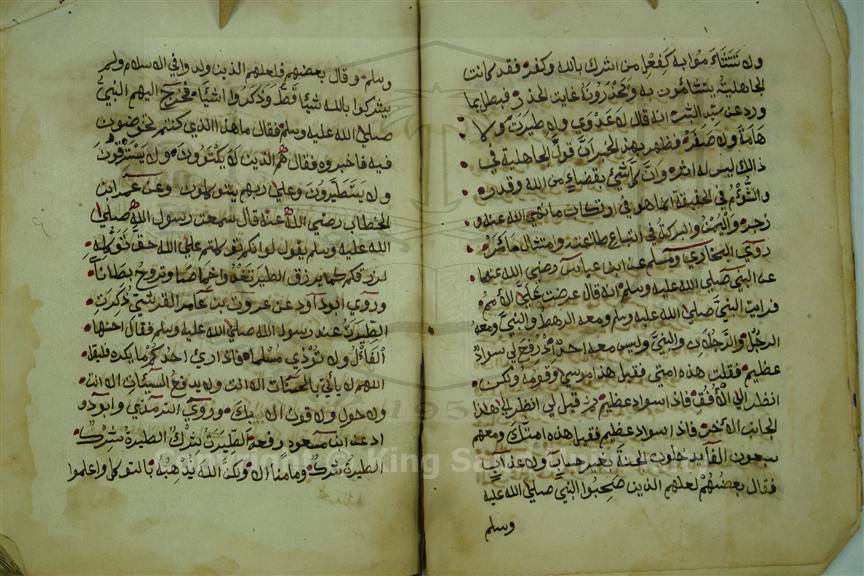 ولا تتشاءموا به كفعل من اشرك بالله وكفر فقد كانت
الجاهلية يتشائمون به وتحذرون غاية الحذر فبطل بما
ورد عن سيد البشر انه قال لا عدوي ولا طيرت ولا
هامة ولا صفر فظهر بهذ الخبر ان قول الجاهلية في
ذالك ليس له اثر وان كل شيء بقضاء من الله وقدر
والشؤم في الحقيقة انما هو في ارتكاب ما نهي الله عنه و
زجر واليمن والبركة في اتباع طاعته وامتثال ما امر
روي البخاري ومسلم عن ابن عباس رضي الله عنهما
عن النبي صلي الله عليه وسلم انه قال عرضت علي الأمم
فرايت النبي صلي الله عليه وسلم ومعه الرهط والنبي ومعه
الرجل والرجلان والنبي وليس معه احد اذ رفع لي سواد
عظيم فقلت هذه امتي فقيل هذا موسي وقومه ولكن
انظر الي الأفق فاذ اسواد عظيم ثم قيل لي انظر الي هذا
الجانب الاخر فاذ اسواد عظيم فقيل هذه امتك ومعهم
سبعون الفا يدخلون الجنة بغير حساب ولا عذاب
فقال بعضهم لعلهم الذين صحبوا النبي صلي الله عليه
وسلم
وسلم وقال بعضهم فلعلهم الذين ولدوا في الاسلام ولم
يشركوا بالله شيئا قط وذكروا اشياء فخرج اليهم النبي
صلي الله عليه وسلم فقال ما هذا الذي كنتم تخوضون
فيه فاخبروه فقال هم الذين لا يكتوون ولا يسترقون
ولا يتطيرون وعلي ربهم يتوكلون وعن عمر ابن
الخطاب رضي الله عنه قال سمعت رسول الله صلي
الله عليه وسلم يقول لو انكم توكلتم علي الله حق توكله
لرزقكم كما يرزق الطير تغدوا خماصا وتروح بطانا
وروي ابو داود عن عروت بن عامر القرشي ذكرت
الطيرة عند رسول الله صلي الله عليه وسلم فقال احسنها
الفائل ولا تردي مسلما فاذ اري احدكم ما يكره فليقل
اللهم لا ياتي بالحسنات الا انت ولا يدفع السيئات الا انت
ولا حول ولا قوت الا بك وروي الترمذي وابو دو
اد عن ابن مسعود رفعه الطيرة شرك الطيرة شرك
الطيرة شرك وما منا الا ولكن الله يذهبه بالتوكل واعلموا
Copyright © King Saud University